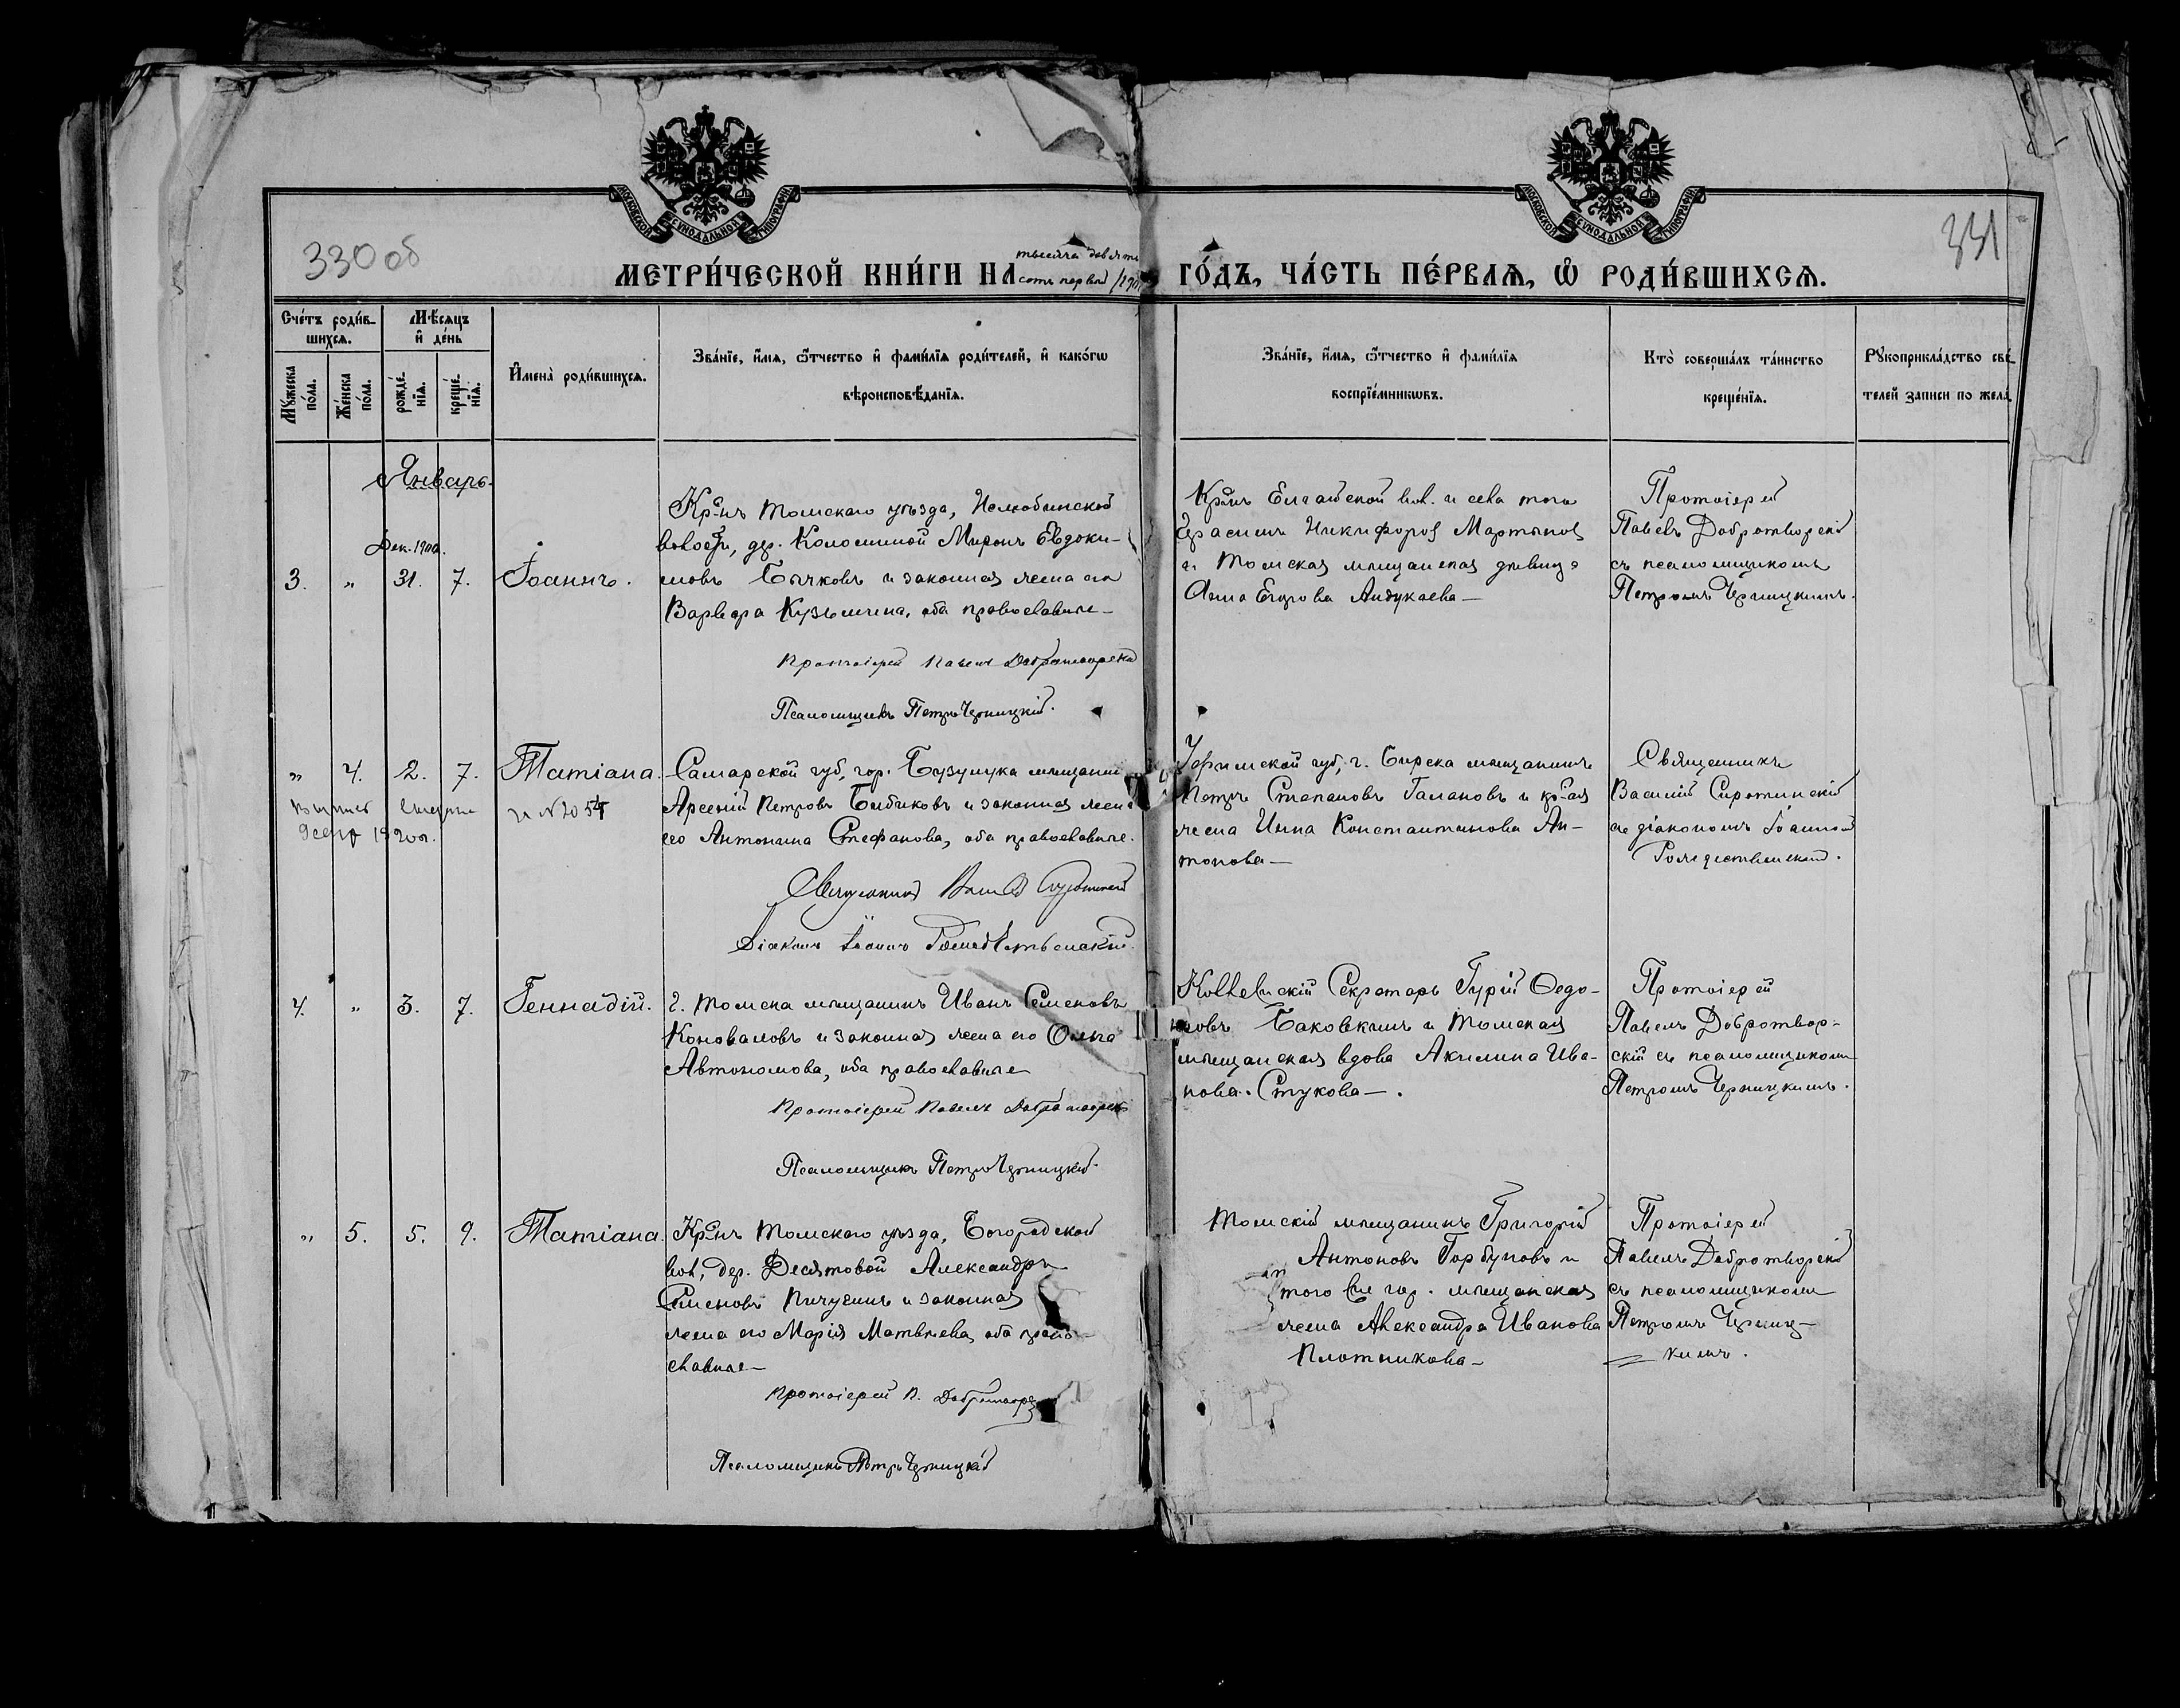 330 об
331
МОСКОВСКОЙ СУНОДАЛЬНОЙ ТИПОГРАФІИ
МОСКОВСКОЙ СУНОДАЛЬНОЙ ТИПОГРАФІИ
МЕТРИ́ЧЕСКОЙ КНИ́ГИ НА тысяча девять
сотъ первый /190 ГО́ДЪ, ЧА́СТЬ ПЕ́РВАѦ, Ѡ҆ РОДИ́ВШИХСѦ.
Счéтъ роди́в-
шихсѧ.
Мꙋ́жеска по́ла.
Же́нска по́ла.
Мѣ́сѧцъ
и҆ де́нь
рожде́-
нїѧ.
креще́-
нїѧ.
И҆мена̀ роди́вшихсѧ.
Зва́нїе, и҆́мѧ, ѻ҆́тчество и҆ фами́лїѧ роди́телей, и҆ како́гѡ
вѣроисповѣ́данїѧ.
Зва́нїе, и҆́мѧ, ѻ҆́тчество и҆ фами́лїѧ
воспрїе́мникѡвъ.
Кто̀ соверша́лъ та́инство
креще́нїѧ.
Рꙋкоприкла́дство сви́-
телей записи по жела́
Январь
Дек. 1900.
3. „ 31. 7. Іоаннъ.
Кр-нъ Томскаго уѣзда, Нелюбинской
волости, дер. Коломиной Миронъ Евдоки-
мовъ Бычковъ и законная жена его
Варвара Кузьмина, оба православные
Протоіерей Павелъ Добротворскій
Псаломщикъ Петръ Черницкій.
Кр-нъ Елгайской вол. и села того
Герасимъ Никифоровъ Мартыновъ
и Томская мѣщанская дѣвица
Анна Егорова Андукаева
Протоіерей
Павелъ Добротворскій
съ псаломщикомъ
Петромъ Черницкимъ.
„ 4. 2. 7. Татіана.
1920 г.
за № 2054
Самарской губ, гор. Бузулука мѣщанинъ
Арсеній Петровъ Бибиковъ и законная жена
его Антонина Стефанова, оба православные.
Священникъ Василій Сиротинскій
Діаконъ Іоаннъ Рождественскій.
Уфимской губ, г. Бирска мѣщанинъ
Петръ Степановъ Галановъ и кр-ая
жена Инна Константинова Ан-
тонова
Священникъ
Василій Сиротинскій
съ діакономъ Іоанномъ
Рождественскимъ.
4. „ 3. 7. Геннадій.
г. Томска мѣщанинъ Иванъ Семеновъ
Коноваловъ и законная жена его Ольга
Автономова, оба православные
Протоіерей Павелъ Добротворск
Псаломщикъ Петръ Черницкій.
Коллежскій Секретарь Гурій Ѳедо-
ровъ Баковкинъ и Томская
мѣщанская вдова Акилина Ива-
нова Стукова
Протоіерей
Павелъ Добротвор-
скій съ псаломщикомъ
Петромъ Черницкимъ.
„ 5. 5. 9. Татіана.
Кр-нъ Томскаго уѣзда, Богородской
вол, дер. Десятовой Александръ
Семеновъ Пичугинъ и законная
жена его Марія Матвѣева, оба право-
славные
Протоіерей П. Добротвор
Псаломщикъ Петръ Черницкій
Томскій мѣщанинъ Григорій
Антоновъ Горбуновъ и
того же гор. мѣщанская
жена Александра Иванова
Плотникова
Протоіерей
Павелъ Добротворскій
съ псаломщикомъ
Петромъ Черниц-
кимъ.